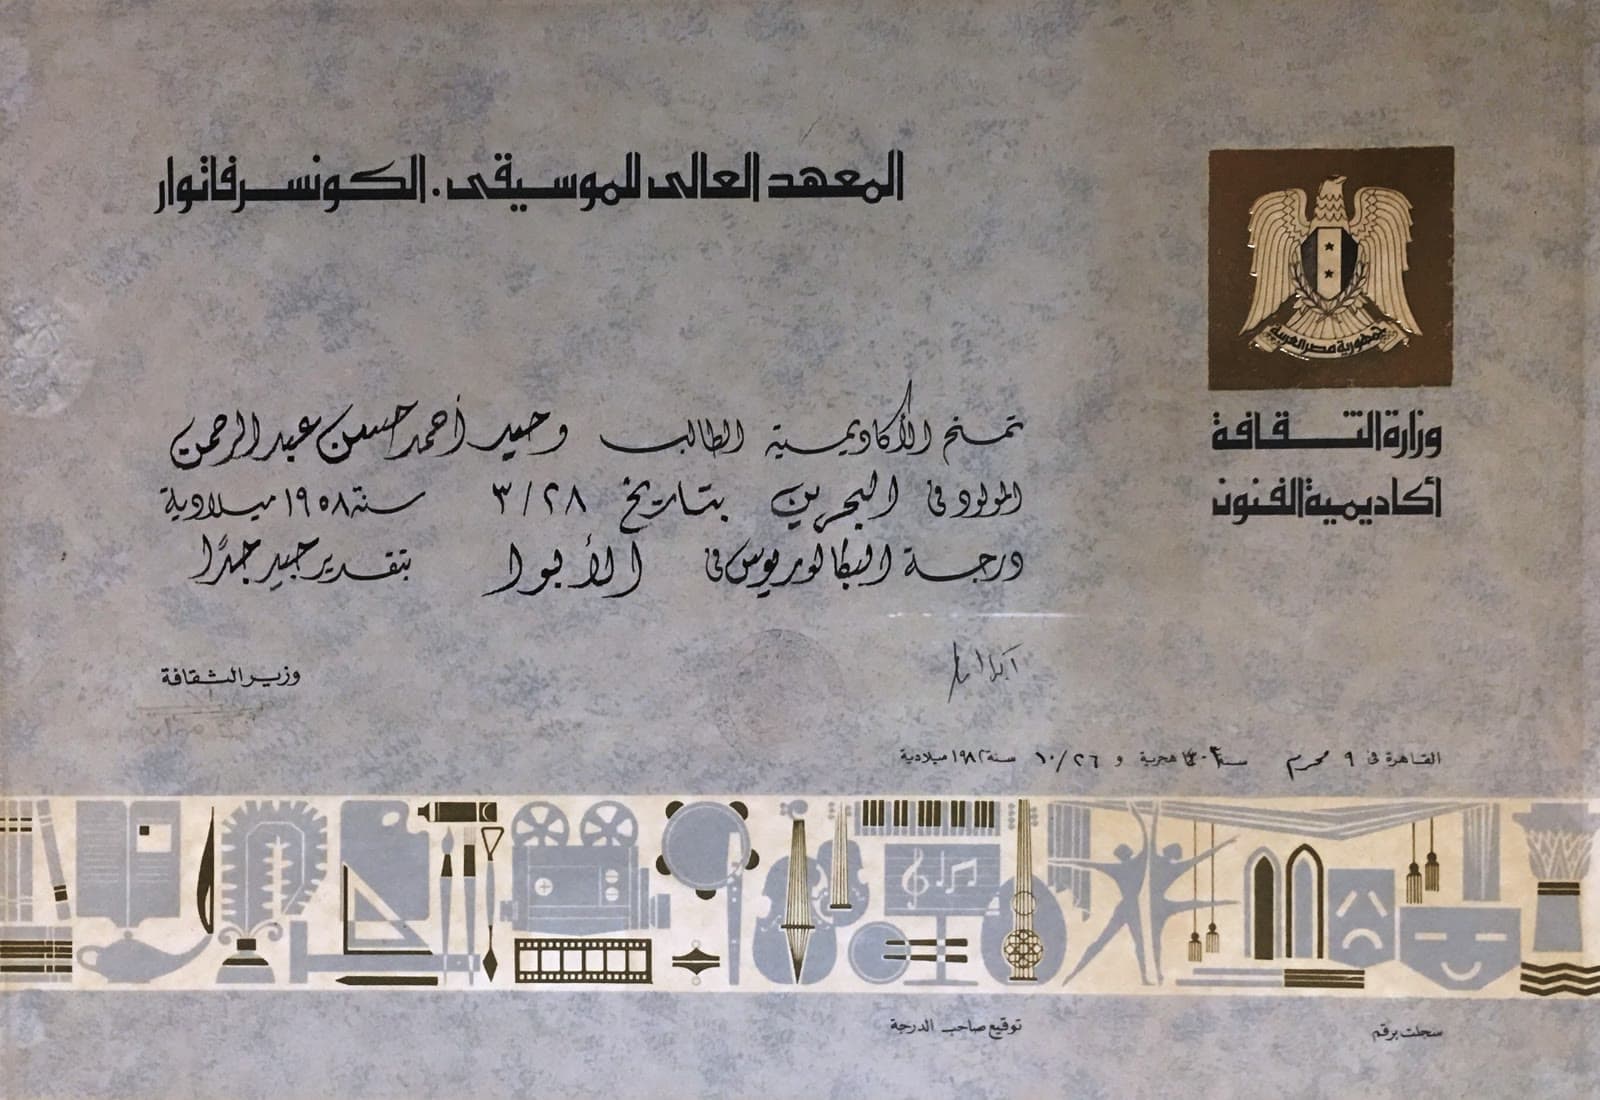 المعهد العالى للموسيقى . الكونسرفاتوار
جمهورية مصر العربية
وزارة الثقافة
أكاديمية الفنون
تمنح الأكاديمية الطالب وحيد أحمد حسن عبد الرحمن
المولود فى البحرين بتاريخ ٣/٢٨ سنة ١٩٥٨ ميلادية
درجة البكالوريوس فى الأبوا بتقدير جيد جدًا
وزير الثقافة
القاهرة فى ٩ محرم سنة هجرية و ١٠/٢٦ سنة ١٩٨٢ ميلادية
توقيع صاحب الدرجة
سجلت برقم